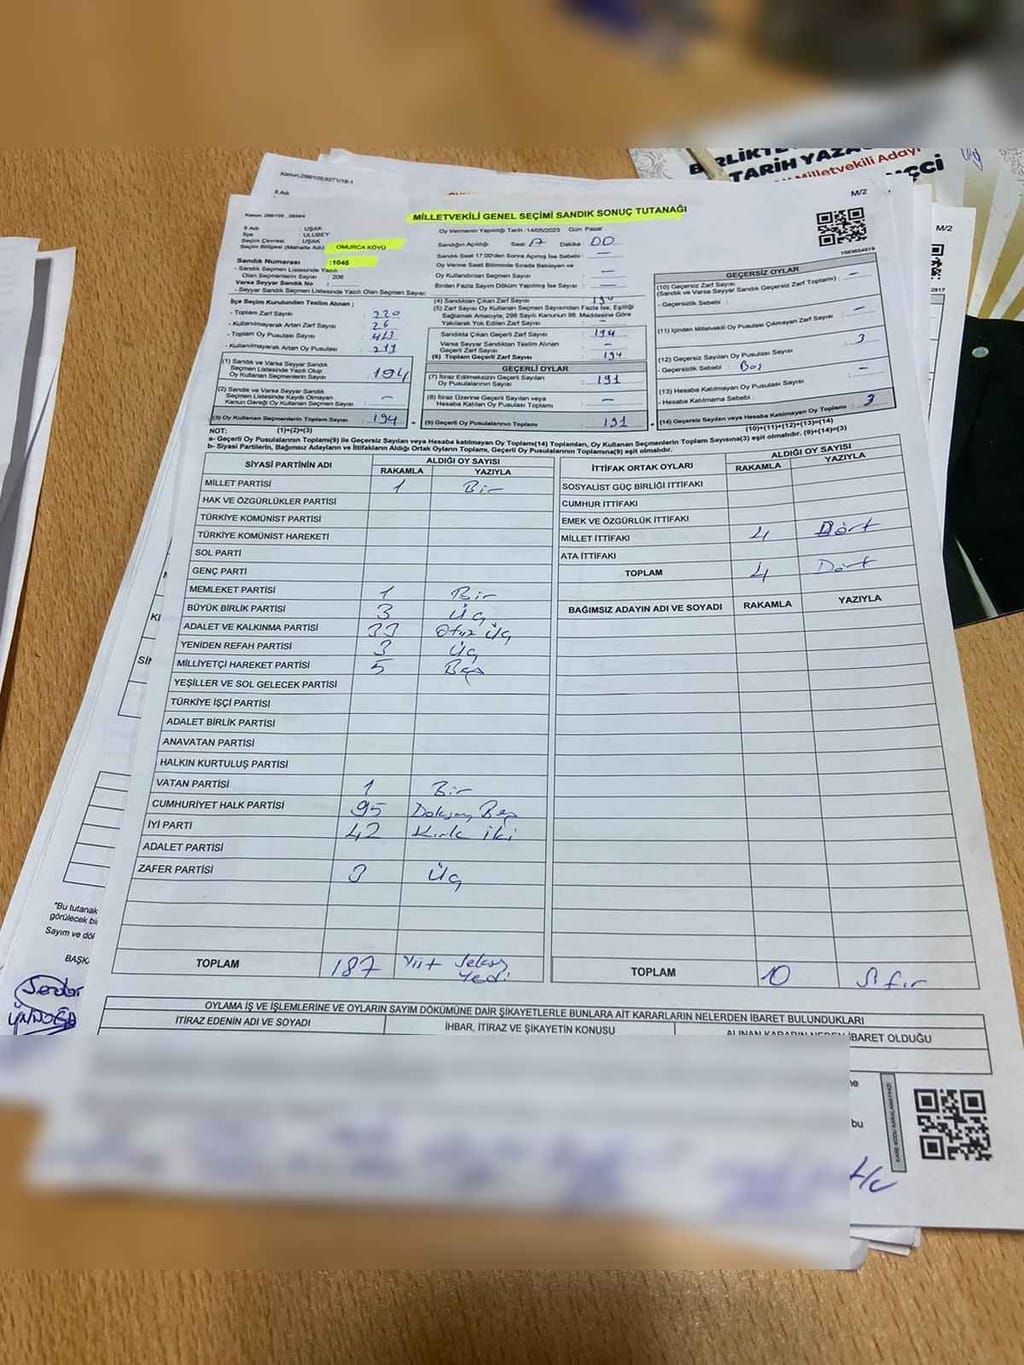 BİRLİKTE
TARİH YAZA
Milletvekili Adayı
Kanun:298/105,6271/16-1
M/2
M/2
Kanun: 298/105 , 2839/4
MİLLETVEKİLİ GENEL SEÇİMİ SANDIK SONUÇ TUTANAĞI
İl Adı : UŞAK
İlçe : ULUBEY
Seçim Çevresi : UŞAK
Seçim Bölgesi (Mahalle Adı) : OMURCA KÖYÜ
Sandık Numarası : 1045
- Sandık Seçmen Listesinde Yazılı Olan Seçmenlerin Sayısı : 206
Varsa Seyyar Sandık No :
- Seyyar Sandık Seçmen Listesinde Yazılı Olan Seçmen Sayısı :
Oy Vermenin Yapıldığı Tarih :14/05/2023 Gün: Pazar
Sandığın Açıldığı Saat 17 Dakika 00
Sandık Saat 17:00'den Sonra Açılmış İse Sebebi : —
Oy Verme Saati Bitiminde Sırada Bekleyen ve
Oy Kullandırılan Seçmen Sayısı : —
Birden Fazla Sayım Döküm Yapılmış İse Sayısı : —
İlçe Seçim Kurulundan Teslim Alınan ;
- Toplam Zarf Sayısı : 220
- Kullanılmayarak Artan Zarf Sayısı : 26
- Toplam Oy Pusulası Sayısı : 413
- Kullanılmayarak Artan Oy Pusulası : 219
(1) Sandık ve Varsa Seyyar Sandık
Seçmen Listesinde Yazılı Olup
Oy Kullanan Seçmenlerin Sayısı : 194
(2) Sandık ve Varsa Seyyar Sandık
Seçmen Listesinde Kayıtlı Olmayan
Kanun Gereği Oy Kullanan Seçmen Sayısı : —
(3) Oy Kullanan Seçmenlerin Toplam Sayısı : 194
(4) Sandıktan Çıkan Zarf Sayısı : 194
(5) Zarf Sayısı Oy Kullanan Seçmen Sayısından Fazla İse, Eşitliği
Sağlamak Amacıyla, 298 Sayılı Kanunun 98. Maddesine Göre
Yakılarak Yok Edilen Zarf Sayısı : —
Sandıkta Çıkan Geçerli Zarf Sayısı : 194
Varsa Seyyar Sandıktan Teslim Alınan
Geçerli Zarf Sayısı : —
(6) Toplam Geçerli Zarf Sayısı : 194
GEÇERLİ OYLAR
(7) İtiraz Edilmeksizin Geçerli Sayılan
Oy Pusulalarının Sayısı : 191
(8) İtiraz Üzerine Geçerli Sayılan veya
Hesaba Katılan Oy Pusulası Toplamı : —
(9) Geçerli Oy Pusulaları Toplamı : 191
GEÇERSİZ OYLAR
(10) Geçersiz Zarf Sayısı
(Sandık ve Varsa Seyyar Sandık Geçersiz Zarf Toplamı) : —
- Geçersizlik Sebebi :
(11) İçinden Milletvekili Oy Pusulası Çıkmayan Zarf Sayısı : —
(12) Geçersiz Sayılan Oy Pusulası Sayısı : 3
- Geçersizlik Sebebi : Boş
(13) Hesaba Katılmayan Oy Pusulası Sayısı : —
- Hesaba Katılmama Sebebi :
(14) Geçersiz Sayılan veya Hesaba Katılmayan Oy Toplamı : 3
NOT: (1)+(2)=(3) (10)+(11)+(12)+(13)=(14)
a- Geçerli Oy Pusulalarının Toplamı(9) ile Geçersiz Sayılan veya Hesaba katılmayan Oy Toplamı(14) Toplamları, Oy Kullanan Seçmenlerin Toplam Sayısına(3) eşit olmalıdır. (9)+(14)=(3)
b- Siyasi Partilerin, Bağımsız Adayların ve İttifakların Aldığı Ortak Oyların Toplamı, Geçerli Oy Pusulalarının Toplamına(9) eşit olmalıdır.
SİYASİ PARTİNİN ADI ALDIĞI OY SAYISI
RAKAMLA YAZIYLA
MİLLET PARTİSİ 1 Bir
HAK VE ÖZGÜRLÜKLER PARTİSİ
TÜRKİYE KOMÜNİST PARTİSİ
TÜRKİYE KOMÜNİST HAREKETİ
SOL PARTİ
GENÇ PARTİ
MEMLEKET PARTİSİ 1 Bir
BÜYÜK BİRLİK PARTİSİ 3 Üç
ADALET VE KALKINMA PARTİSİ 33 Otuz Üç
YENİDEN REFAH PARTİSİ 3 Üç
MİLLİYETÇİ HAREKET PARTİSİ 5 Beş
YEŞİLLER VE SOL GELECEK PARTİSİ
TÜRKİYE İŞÇİ PARTİSİ
ADALET BİRLİK PARTİSİ
ANAVATAN PARTİSİ
HALKIN KURTULUŞ PARTİSİ
VATAN PARTİSİ 1 Bir
CUMHURİYET HALK PARTİSİ 95 Doksan Beş
İYİ PARTİ 42 Kırk İki
ADALET PARTİSİ
ZAFER PARTİSİ 3 Üç
TOPLAM 187 Yüz Seksen Yedi
İTTİFAK ORTAK OYLARI ALDIĞI OY SAYISI
RAKAMLA YAZIYLA
SOSYALİST GÜÇ BİRLİĞİ İTTİFAKI
CUMHUR İTTİFAKI
EMEK VE ÖZGÜRLÜK İTTİFAKI
MİLLET İTTİFAKI 4 Dört
ATA İTTİFAKI
TOPLAM 4 Dört
BAĞIMSIZ ADAYIN ADI VE SOYADI RAKAMLA YAZIYLA
TOPLAM 0 Sıfır
OYLAMA İŞ VE İŞLEMLERİNE VE OYLARIN SAYIM DÖKÜMÜNE DAİR ŞİKAYETLERLE BUNLARA AİT KARARLARIN NELERDEN İBARET BULUNDUKLARI
İTİRAZ EDENİN ADI VE SOYADI İHBAR, İTİRAZ VE ŞİKAYETİN KONUSU ALINAN KARARIN NEDEN İBARET OLDUĞU
"Bu tutanak
görülecek bi
Sayım ve döl
BAŞK
Serdar
bu